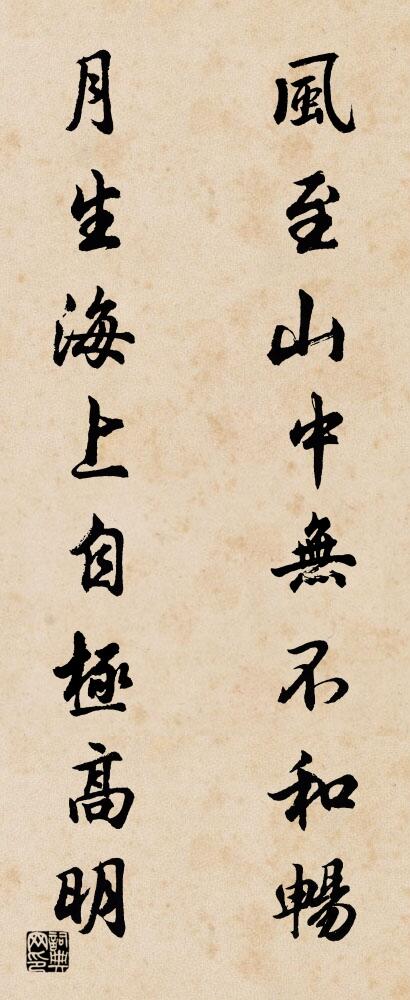 風至山中無不和暢
月生海上自極高明
詞典
网印